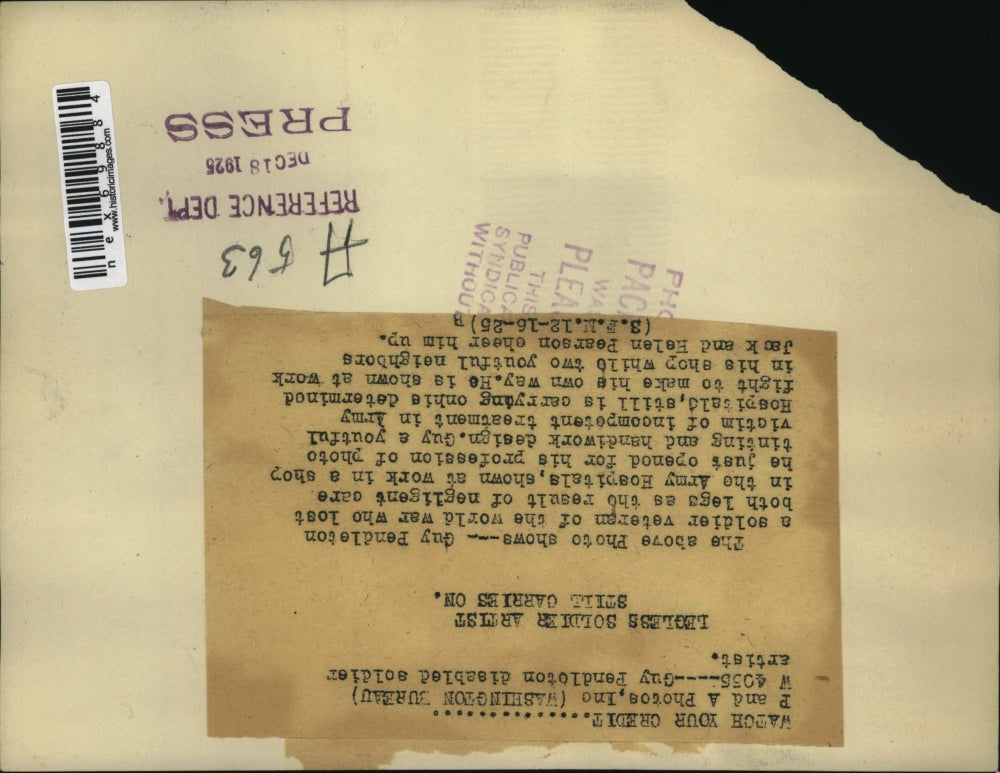 WATCH YOUR CREDIT................
P and A Photos,Inc (WASHINGTON BUREAU)
W 4055----Guy Pendleton disabled soldier
artist.
LEGLESS SOLDIER ARTIST
STILL CARRIES ON.
The above Photo shows--- Guy Pendleton
a soldier vetergn of the world war who lost
both legs as the result of negligent care
in the Army Hospitals,shown at work in a shop
he just opened for his profession of photo
tinting and handiwork design.Guy a youtful
victim of incompetent treatment in Army
Hospitald,still is carrying onhis determinod
fight to make his own way.He is shown at work
in his shop while two youtful neighbors
Jack and Helen Pearson cheer him up.
(S.F.M.12-16-25) B
A 563
REFERENCE DEPT.
DEC 18 1925
PRESS
PLEA
THIS
PUBLICA
SYNDICA
WITHOU
nex698884
www.historicimages.com